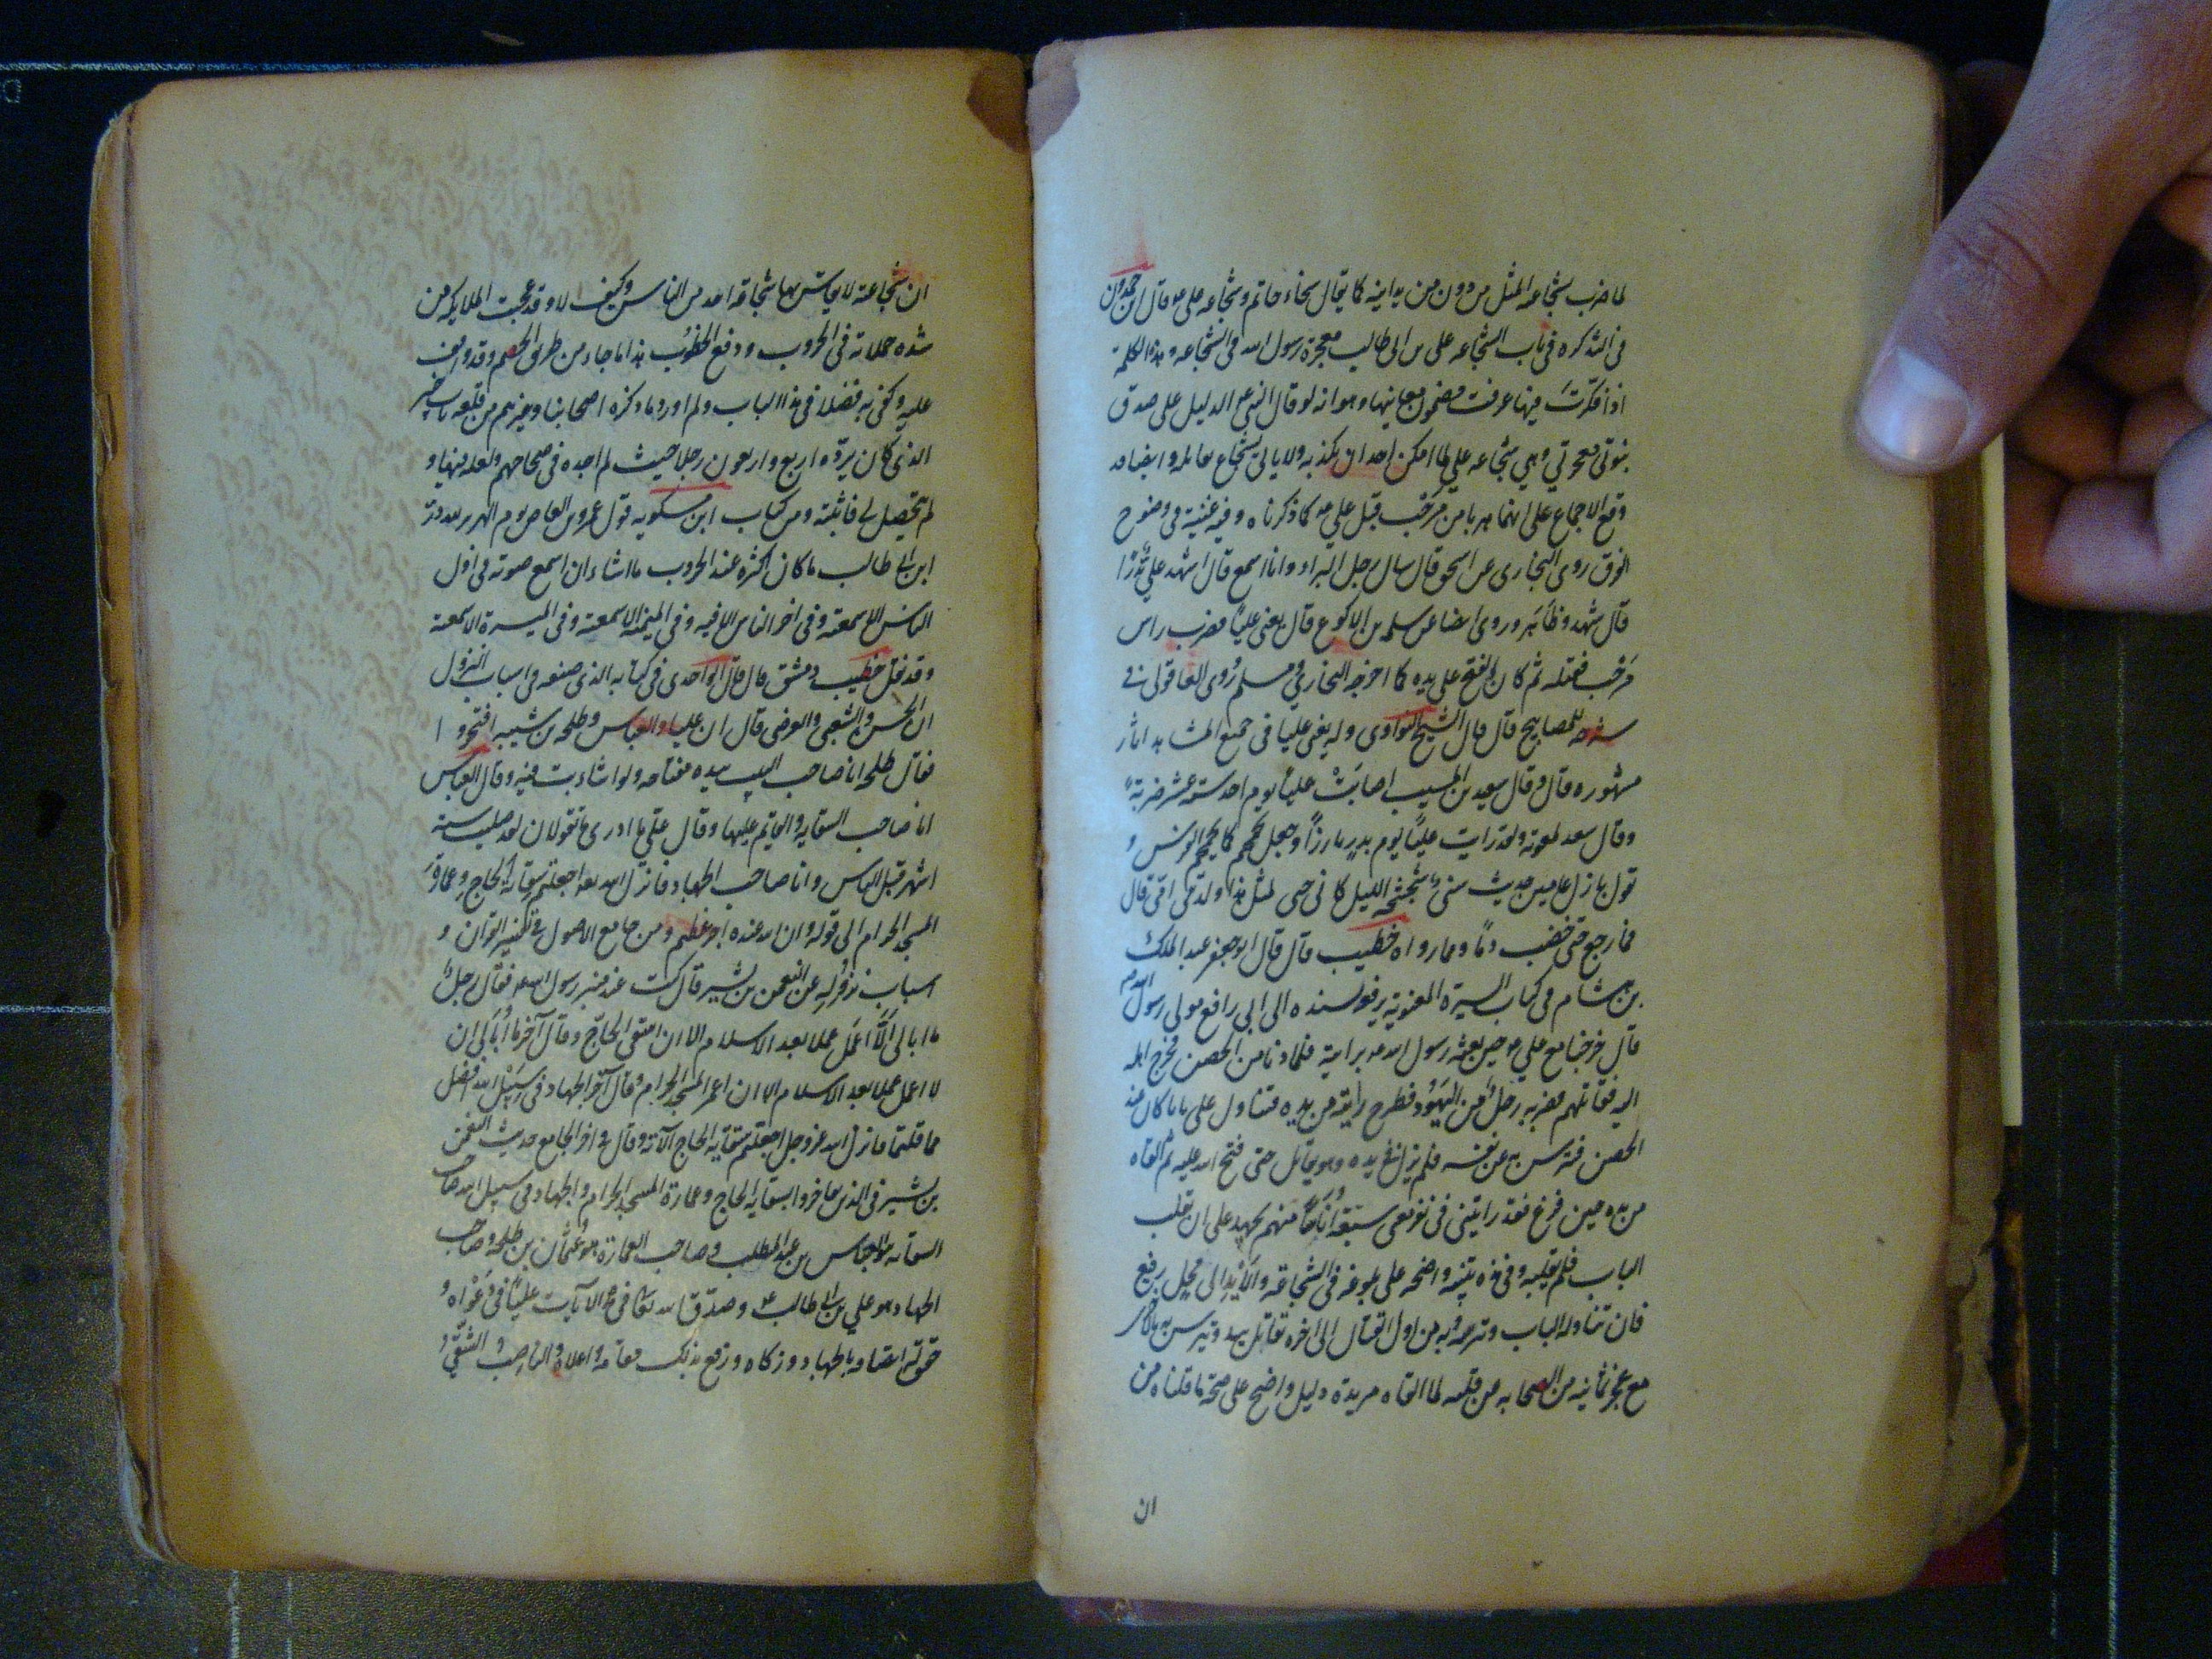 لما ضرب بشجاعه المثل من دون من يدانيه كما يقال سخاء حاتم وشجاعه على عم وقال ابن حمدون
فى التذكره فى باب الشجاعه على بن ابى طالب معجزة رسول الله فى الشجاعه وهذا الكلمة
اذا فكرت فيها عرفت مضمون معانيها وهو انه لو قال النبى عم الدليل على صدق
نبوتى ومعجزتي وهى شجاعه علي لما امكن احد ان يكذبه ولا ياتى بشجاع يعادله وايضا قد
وقع الاجماع على انهما هربا من مرحب قبل على عم كما ذكرناه وفيه غنية فى وضوح
الفرق روى البخارى عن اسحق قال سال رجل البراء وانا اسمع قال اشهد علي بدرا
قال شهد وظاهر وروى ايضا عن سلمه بن الاكوع قال يعنى عليا فضرب راس
مرحب فقتله ثم كان الفتح على يده كما اخرجه البخارى ومسلم روى العاقولى فى
شرحه للمصابيح قال قال الشيخ النواوى وله يعنى عليا فى جميع المشاهد اثار
مشهوره قال وقال سعيد بن المسيب اصابت عليا يوم احد ستة عشر ضربة
وقال سعد لمعوية ولقد رايت عليا يوم بدر بارزا وجعل يحمحم كما يحمحم الفرس و
يقول بازل عامين حديث سنى سنحنح الليل كانى جنى لمثل هذا ولدتنى امى قال
فما رجع حتى خضب دما ومما رواه خطيب قال قال ابو جعفر عبد الملك
بن هشام فى كتاب السيرة المعنوية يرفع سنده الى ابى رافع مولى رسول الله ص
قال خرجنا مع على عم حين بعثه رسول الله عم برايته فلما دنا من الحصن خرج اهله
اليه فقاتلهم فضربه رجل من اليهود فطرح رايته من يده فتناول على بابا كان عند
الحصن فترس به عن نفسه فلم يزل فى يده وهو يقاتل حتى فتح الله عليه ثم القاه
من يده حين فرغ فلقد رايتنى فى نفر معى سبعة انا ثامنهم نجهد على ان نقلب
الباب فلم نقلبه وفى هذه بينة واضحه على بلوغه فى الشجاعة والايد الى محل رفيع
فان تناوله الباب وتترسه به من اول القتال الى اخره تقاتل بيد وتترس به بالاخرى
مع عجز ثمانيه من الصحابه من قلبه لما القاه من يده دليل واضح على صحة ما قلناه من
ان
ان شجاعته لا يقاس بها شجاعة احد من الناس وكيف لا وقد عجبت الملايكه من
شده حملاته فى الحروب ودفع الخطوب هذا ما جاء من طريق الخصم وقد
عليه وكفى به فضلا فى هذا الباب ولم اورد ما ذكره اصحابنا وغيرهم من قلعه باب خيبر
الذى كان يرده اربع واربعون رجلا حيث لم اجده فى صحاحهم ولعله فيها و
لم يتحصل لى فاثبته ومن كتاب ابن مسكويه قول عمرو بن العاص يوم الهرير لله در
ابن ابى طالب ما كان اكثره عند الحروب ما اشاء ان اسمع صوته فى اول
الناس الا سمعته وفى اخر الناس الا فيه وفى الميمنه الا سمعته وفى الميسرة الا سمعته
وقد نقل خطيب دمشق قال قال الواحدى فى كتابه الذى صنفه فى اسباب النزول
ان الحسن والشعبى والقرضى قال ان عليا والعباس وطلحه بن شيبه افتخروا
فقال طلحه انا صاحب البيت بيده مفتاحه ولو اشاء بت فيه وقال العباس
انا صاحب السقايه والقايم عليها وقال على ما ادرى ما تقولان لقد صليت ستة
اشهر قبل الناس وانا صاحب الجهاد فانزل الله تعه اجعلتم سقاية الحاج وعمارة
المسجد الحرام الى قوله وان الله عنده اجر عظيم ومن جامع الاصول فى تفسير القران و
اسباب نزوله عن النعمن بن بشير قال كنت عند منبر رسول الله عم فقال رجل
ما ابالى الا اعمل عملا بعد الاسلام الا ان اسقى الحاج وقال آخر ما ابالى ان
لا اعمل عملا بعد الاسلام الا ان اعمر المسجد الحرام وقال آخر الجهاد فى سبيل الله افضل
مما قلتما فانزل الله عز وجل اجعلتم سقاية الحاج الآية وقال فى اخر الجامع حديث النعمن
بن بشير فى الذين تفاخروا بسقاية الحاج وعمارة المسجد الحرام والجهاد فى سبيل الله صاحب
السقايه هو العباس بن عبد المطلب وصاحب العمارة هو عثمان بن طلحه وصاحب
الجهاد هو علي بن ابى طالب عم وصدق الله تعا فى هذا الآيات عليا فى دعواه و
حقق اعتقاده بالجهاد وزكاه ورفع بذلك مقامه واعلاه والناصب الشقى